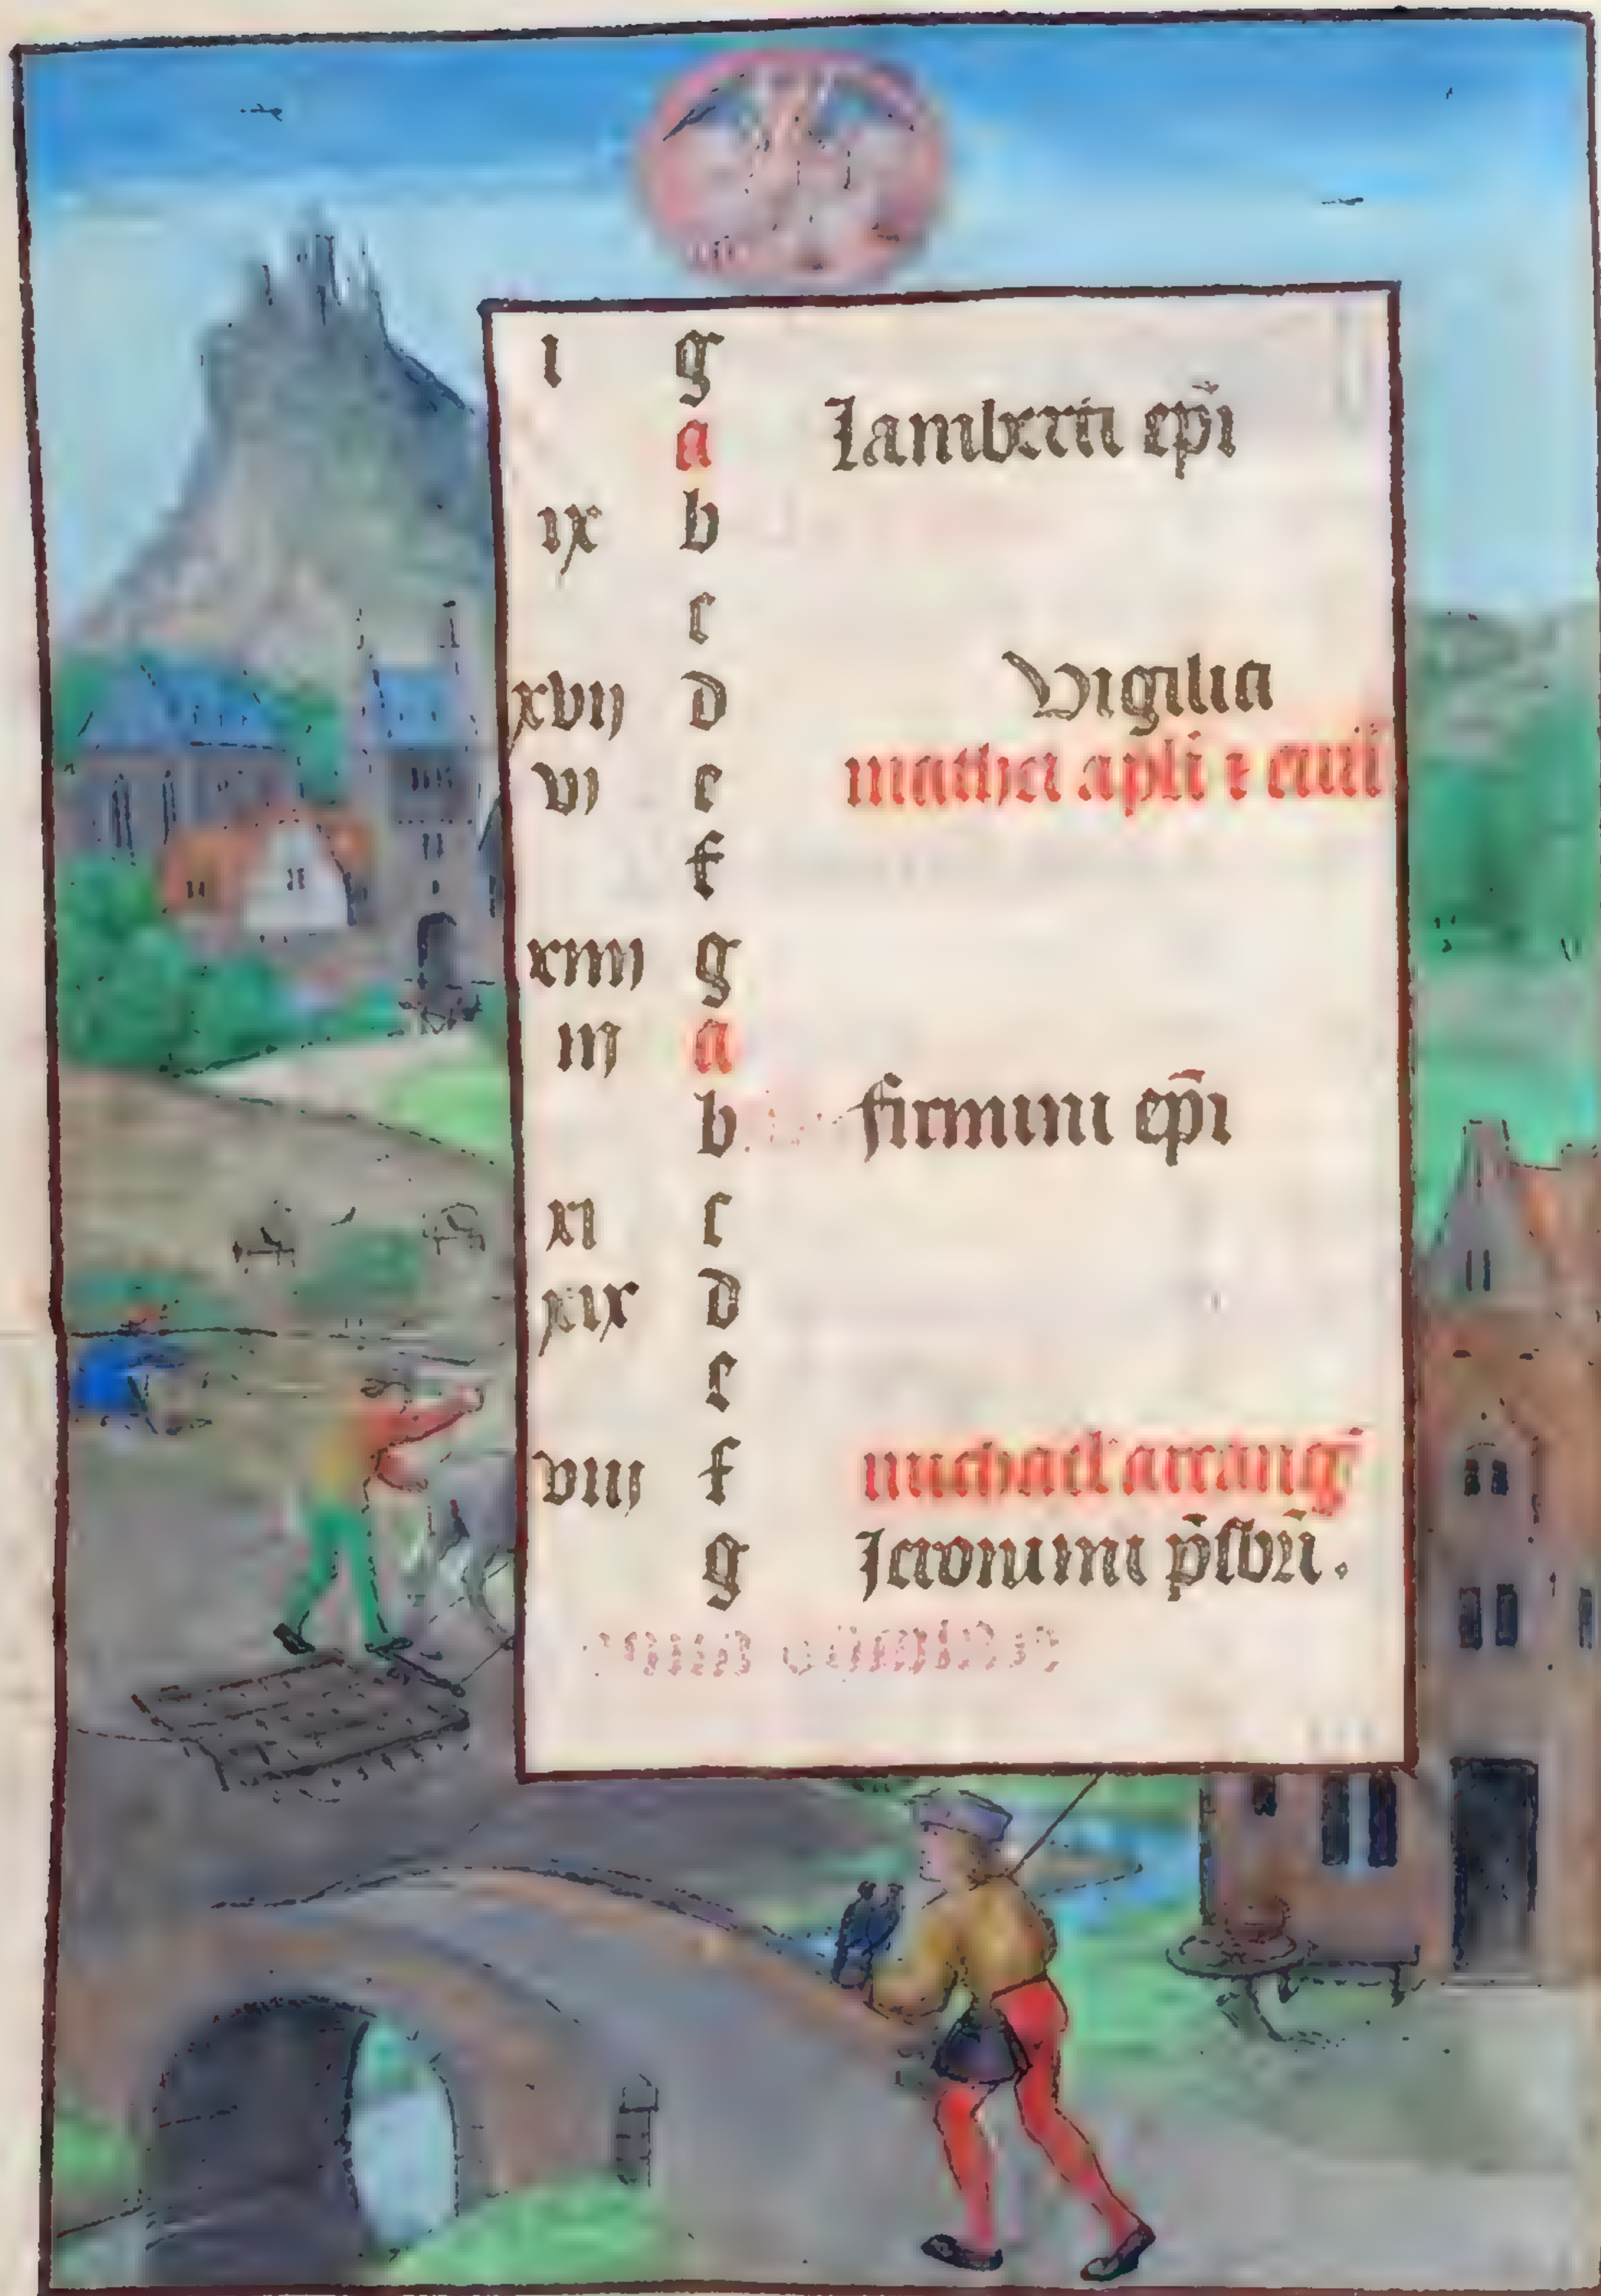 i g
a Lamberti ep̄i
ix b
c
xvij d Vigilia
vj e mathei apl̄i ⁊ eūā
f
xiiij g
iij a
b firmini ep̄i
xi c
xix d
e
viij f michael arcanḡ
g Jeronimi p̄sbr̄i.